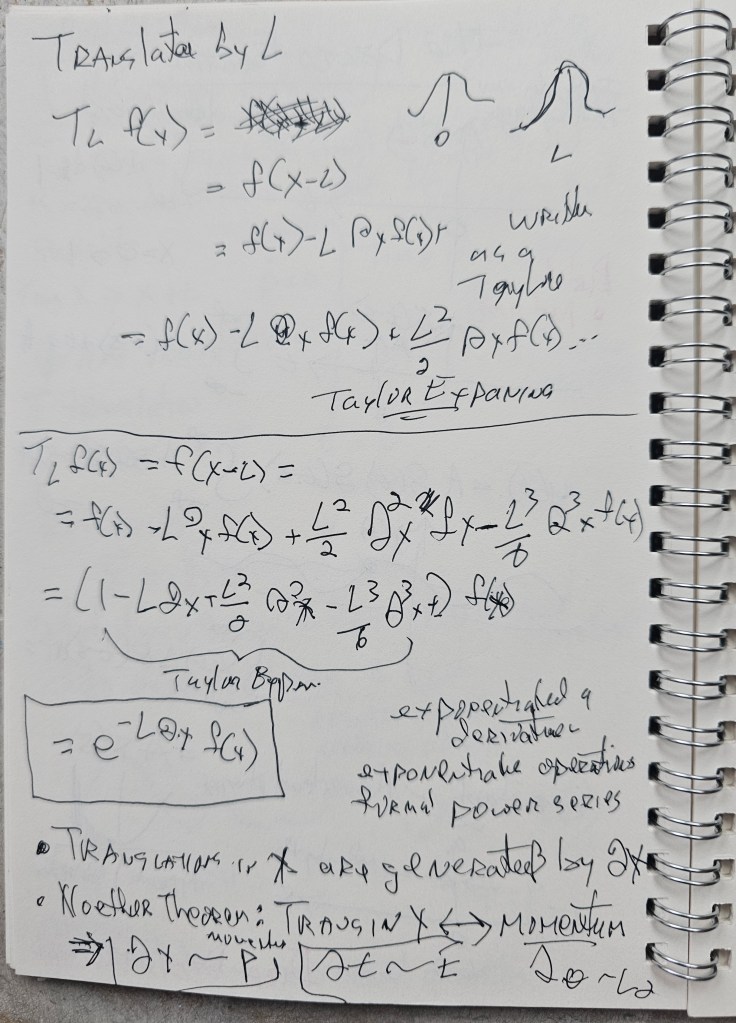 TRANSlates by L
T_L f(x) =
0 L
= f(x-L)
= f(x) - L ∂x f(x) +
written
as a
Taylor
= f(x) - L ∂x f(x) + L²/2 ∂x f(x) ...
Taylor Expaning
T_L f(x) = f(x-L) =
= f(x) - L ∂x f(x) + L²/2 ∂²x fx - L³/6 ∂³x f(x)
= (1 - L∂x + L²/2 ∂²x - L³/6 ∂³x +) f(x)
Taylor
= e^{-L∂x} f(x)
exponentiated a
derivative
exponentiate operations
formal power series
• TRANSLATIONS in X are generated by ∂x
• Noether Theorem: TRANS IN X ↔ MOMENTUM
momentum
⇒ ∂x ~ P ∂t ~ E ∂θ ~ Lz